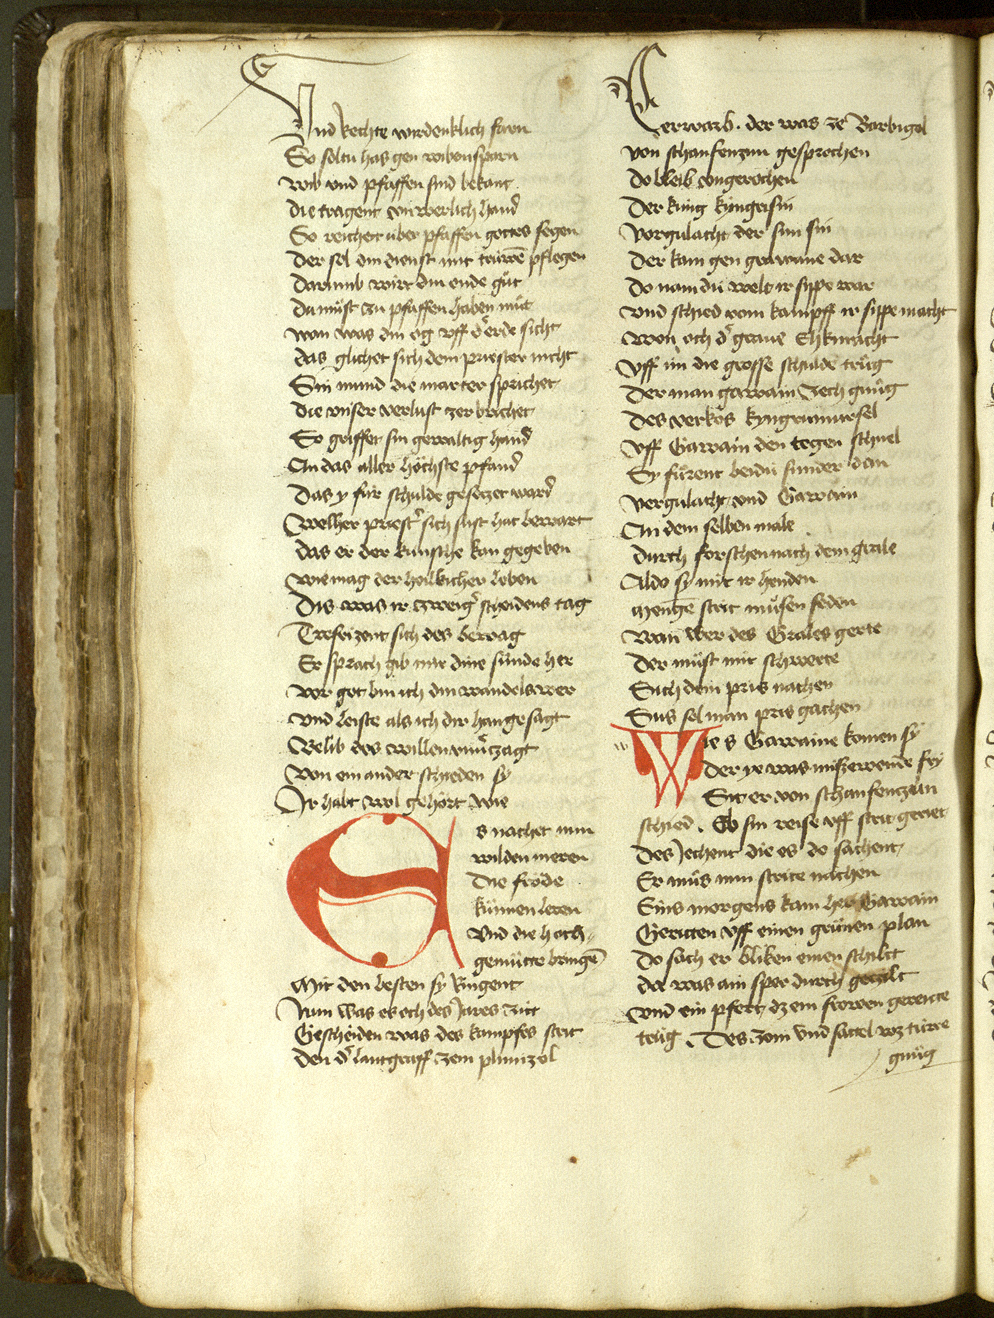 Vnd rechte wirdenklich farn
So soltu has gen wiben sparn
wib vnd pfaffen sind bekant
die tragent vnwerlich hand
So reichet über pfaffen gottes segen
Der sol din dienst mit trüwē pflegen
Darumb wirt din ende gůt
Du můst zu pfaffen haben můt
won was din og vff d' erde sicht
das glichet sich dem priester nicht
Sin mund die marter sprichet
die vnser verlust zer brichet
So griffet sin gewaltig hand
An das aller höchste pfand
Das y für schulde gesetzet ward
Welher priest' sich sust hat bewart
das er der künsche kan gegeben
wie mag der heilklicher leben
Dis was ir zweig' scheidens tag
Trefrizent sich des bewag
Er sprach gib mir dine sünde her
vor got bin ich din wandels wer
vnd leiste als ich dir han gesagt
Belib des willen vnu'zagt
Von ein ander schieden sy
Ir habt wol gehört wie
Es nachet nun
wilden meren
Die fröde
künnen leren
vnd die hoch
gemütte bringē
Mit den besten sy Ringent
Nun was es och des Jares zitt
Gescheiden was des kampfes strit
den d' lantgraff zem plimizol
Cerwarb. der was ze Barbigol
von schanfenzun gesprochen
do bleib vngerochen
Der küng kyngrisin
vorgulacht der sun sin
Der kam gen gawane dar
Do nam dü welt ir sippe war
vnd schied vom kampff ir sippe macht
won och d' graue Ehkunacht
vff im die grosse schulde trůg
Der man gawain zech gnůg
Des verkös kyngrimursel
vff Gawain den tegen schnel
Sy fůrent beidü sunder dan
vergulacht vnd Gawain
An dem selben male
Durch forschen nach dem grale
Aldo sy mit ir henden
mengē strit můsen senden
wan wer des Grales gerte
Der můst mit schwerte
Sich dem pris nachen
Sus sol man pris gachen
Wie s Gawaine komen sy
Der ye was missewende fry
Sit er von schanfenzun
schied. Ob sin reise vff strit geriet
Des Jechent die es do sachent
Er můs nun strite nachen
Eins morgens kam her Gawain
Geritten vff einen grünen plan
do sach er bliken einen schiltt
da was ain sper durch gezilt
vnd ein pfert dz ein frowen gereite
trůg. Des zom vnd sattel wz türe
gnůg